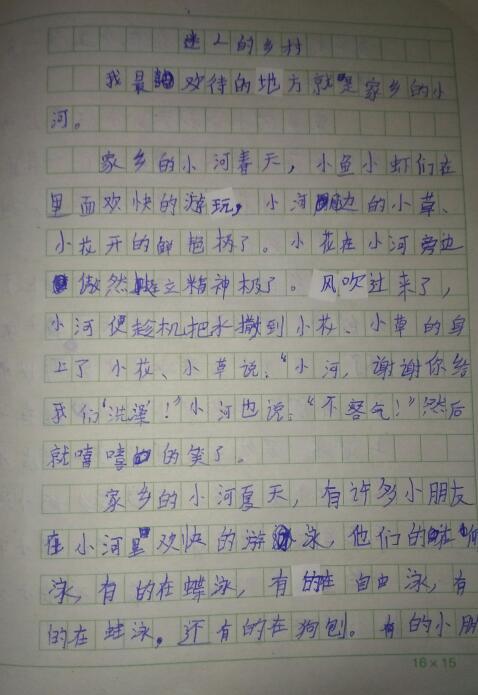 迷人的乡村
我最欢待的地方就是家乡的小
河。
家乡的小河春天，小鱼小虾们在
里面欢快的游玩，小河边的小草、
小花开的鲜艳极了。小花在小河旁边
傲然挺立精神极了。风吹过来了，
小河便趁机把水撒到小花、小草的身
上了小花、小草说：“小河，谢谢你给
我们“洗澡！”小河也说：“不客气！”然后
就嘻嘻的笑了。
家乡的小河夏天，有许多小朋友
在小河里欢快的游泳，他们的
泳，有的在蝶泳，有的在自由泳，有
的在蛙泳。还有的在狗刨。有的小朋
16×15